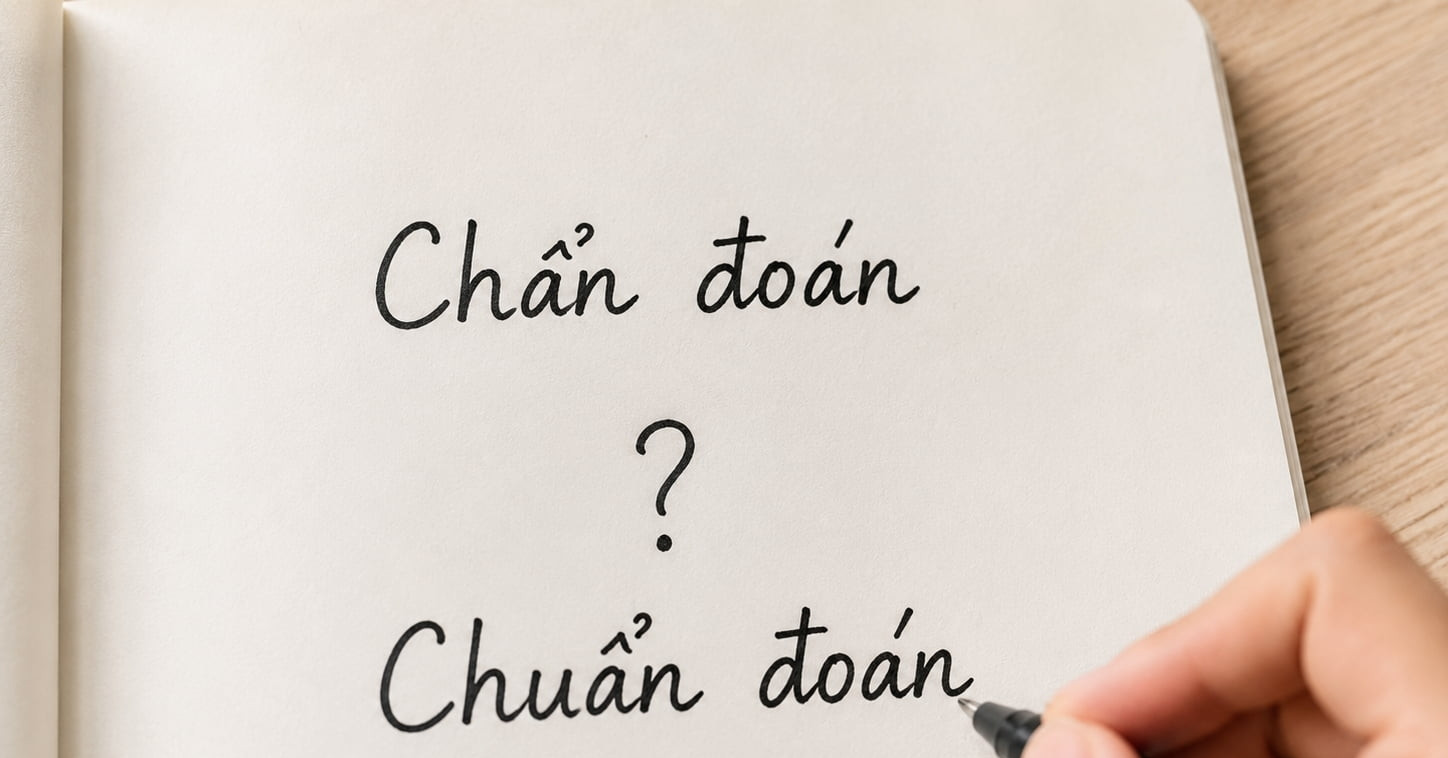 Chẩn đoán
?
Chuẩn đoán